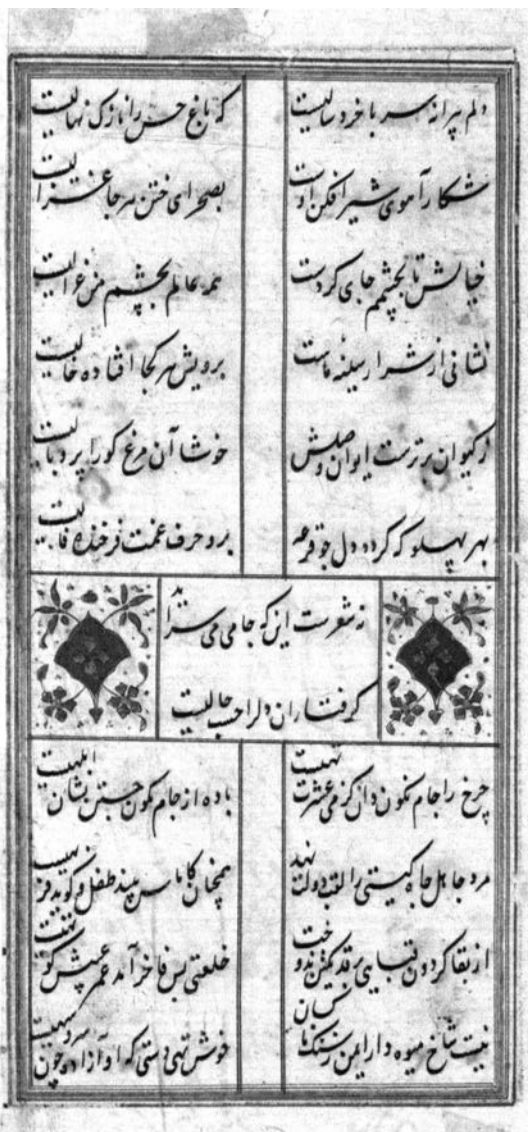 دلم پیرانه سر با خرد سالیست
که باغ حسن را نازک نهالیست
شکار آهوی شیر افکن اوست
بصحرای ختن هر جا غزالیست
خیالش تا بچشمم جای کردست
همه عالم بچشم من خیالیست
نشانی از شرار سینه ماست
برویش هر کجا افتاده خالیست
ز کیوان برترست ایوان وصلش
خوشا آن مرغ کو را پر و بالیست
بهر پهلو که گردد دل چو قرعه
برو حرف غمت فرخنده فالیست
نه شعرست این که جامی می سراید
گرفتاران دل را حسب حالیست
چرخ را جام نگون دان کز می عشرت تهیست
باده از جام نگون جستن نشان ابلهیست
مرد جاهل جاه گیتی را لقب دولت نهد
همچنان کاماس بیند طفل و گوید فربهیست
از بقا گردون قبایی بر قد یکتن ندوخت
خلعتی بس فاخر آمد عمر عیبش کوتهیست
نیست شاخ میوه دار ایمن ز سنگ ناکسان
خوش تهی دستی که او آزاده چون سرو سهیست